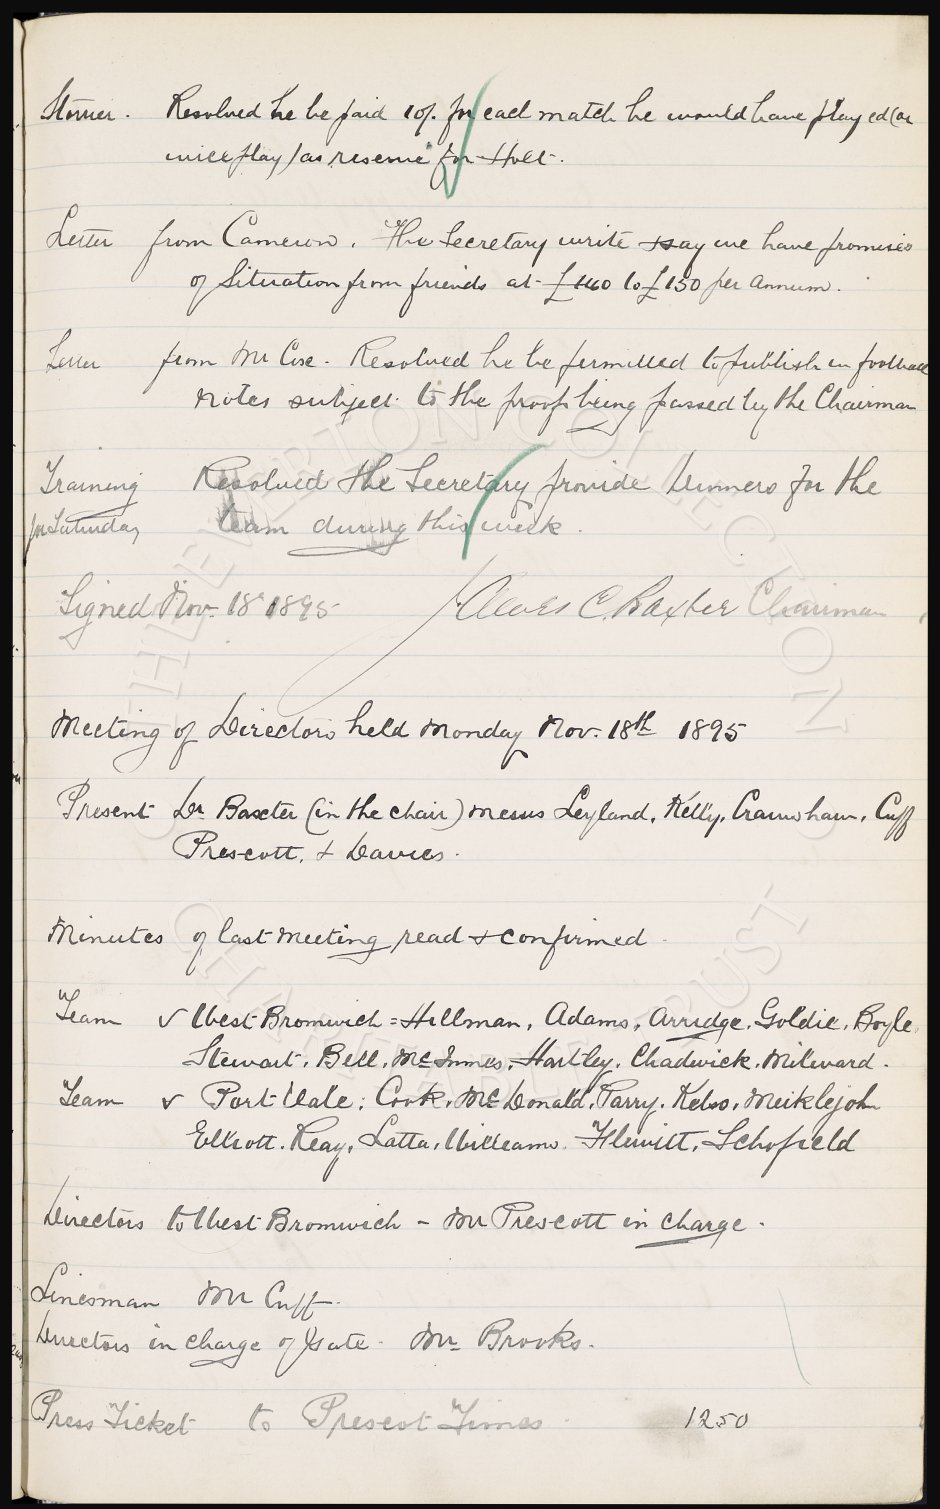 Storrier. Resolved he be paid 10/. for each match he would have played (or
will play) as reserve for Holt.
Letter from Cameron. The Secretary write & say we have promises
of Situation from friends at £140 to £150 per annum.
Letter from Mr Coe. Resolved he be permitted to publish in football
notes subject to the proof being passed by the Chairman
Training Resolved the Secretary provide dinners for the
for Saturday team during this week.
Signed Nov. 18th 1895 James C. Baxter Chairman
Meeting of Directors held Monday Nov. 18th 1895
Present Dr Baxter (in the chair) Messrs Leyland, Kelly, Crawshaw, Cuff
Prescott, & Davies.
Minutes of last meeting read & confirmed.
Team v West Bromwich = Hillman, Adams, Arridge, Goldie, Boyle,
Stewart, Bell, McInnes, Hartley, Chadwick, Milward.
Team v Port Vale; Cook, McDonald, Parry, Kelso, Meiklejohn
Elliott, Reay, Latta, Williams, Flewitt, Schofield
Directors to West Bromwich - Mr Prescott in charge.
Linesman Mr Cuff.
Directors in charge of Gate. Mr Brooks.
Press Ticket to Prescot Times. 1250
THE EVERTON COLLECTION
CHARITABLE TRUST